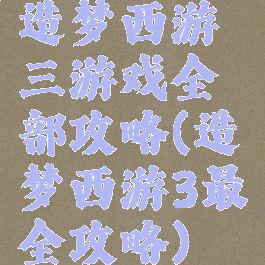 造梦西游
三游戏全
部攻略(造
梦西游3最
全攻略)